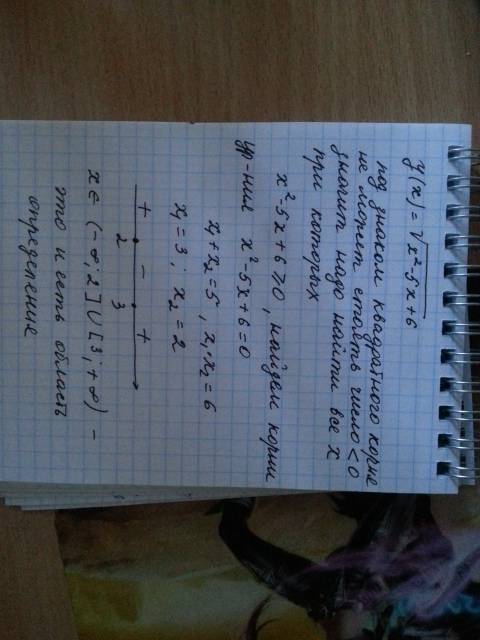 y(x) = √x²-5x+6
под знаком квадратного корне
не может стоять число < 0
значит надо найти все x
при которых
x²-5x+6 ≥ 0, найдем корни
ур-ния x²-5x+6=0
x₁+x₂=5, x₁·x₂=6
x₁=3; x₂=2
+ - +
2 3
x ∈ (-∞; 2] ∪ [3; +∞) -
это и есть область
определение